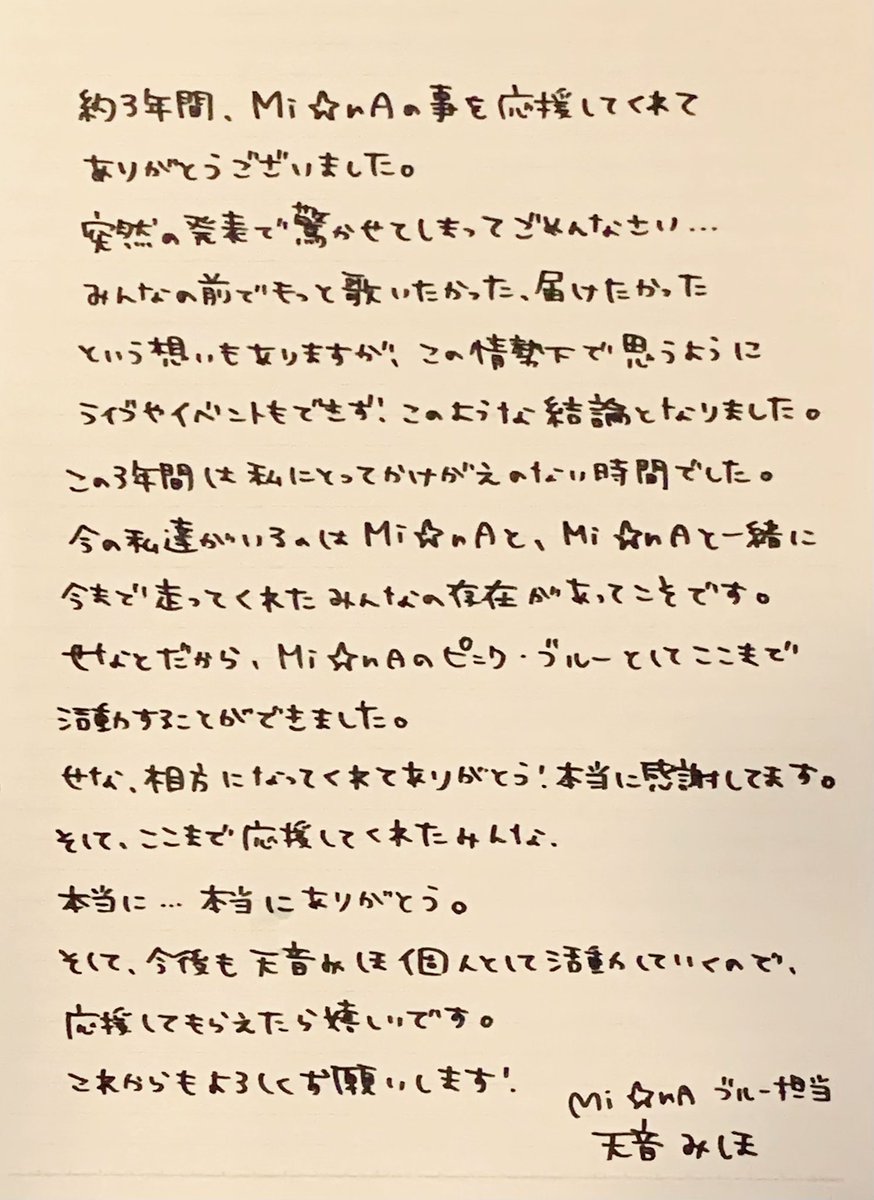 約3年間、Mi☆nAの事を応援してくれて
ありがとうございました。
突然の発表で驚かせてしまってごめんなさい…
みんなの前でもっと歌いたかった、届けたかった
という想いもありますが、この情勢下で思うように
ライヴやイベントもできず、このような結論となりました。
この3年間は私にとってかけがえのない時間でした。
今の私達がいるのはMi☆nAと、Mi☆nAと一緒に
今まで走ってくれたみんなの存在があってこそです。
せなとだから、Mi☆nAのピンク・ブルーとしてここまで
活動することができました。
せな、相方になってくれてありがとう!本当に感謝してます。
そして、ここまで応援してくれたみんな、
本当に…本当にありがとう。
そして、今後も天音みほ個人として活動していくので、
応援してもらえたら嬉しいです。
これからもよろしくお願いします!
Mi☆nA ブルー担当
天音みほ